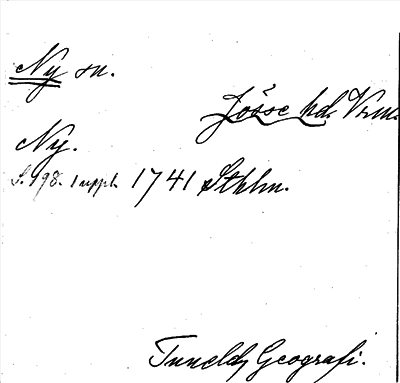 Ny sn.
Jösse hd. Vrml.
Ny.
S. 198. 1 uppl. 1741 Sthlm.
Tunelds Geografi.